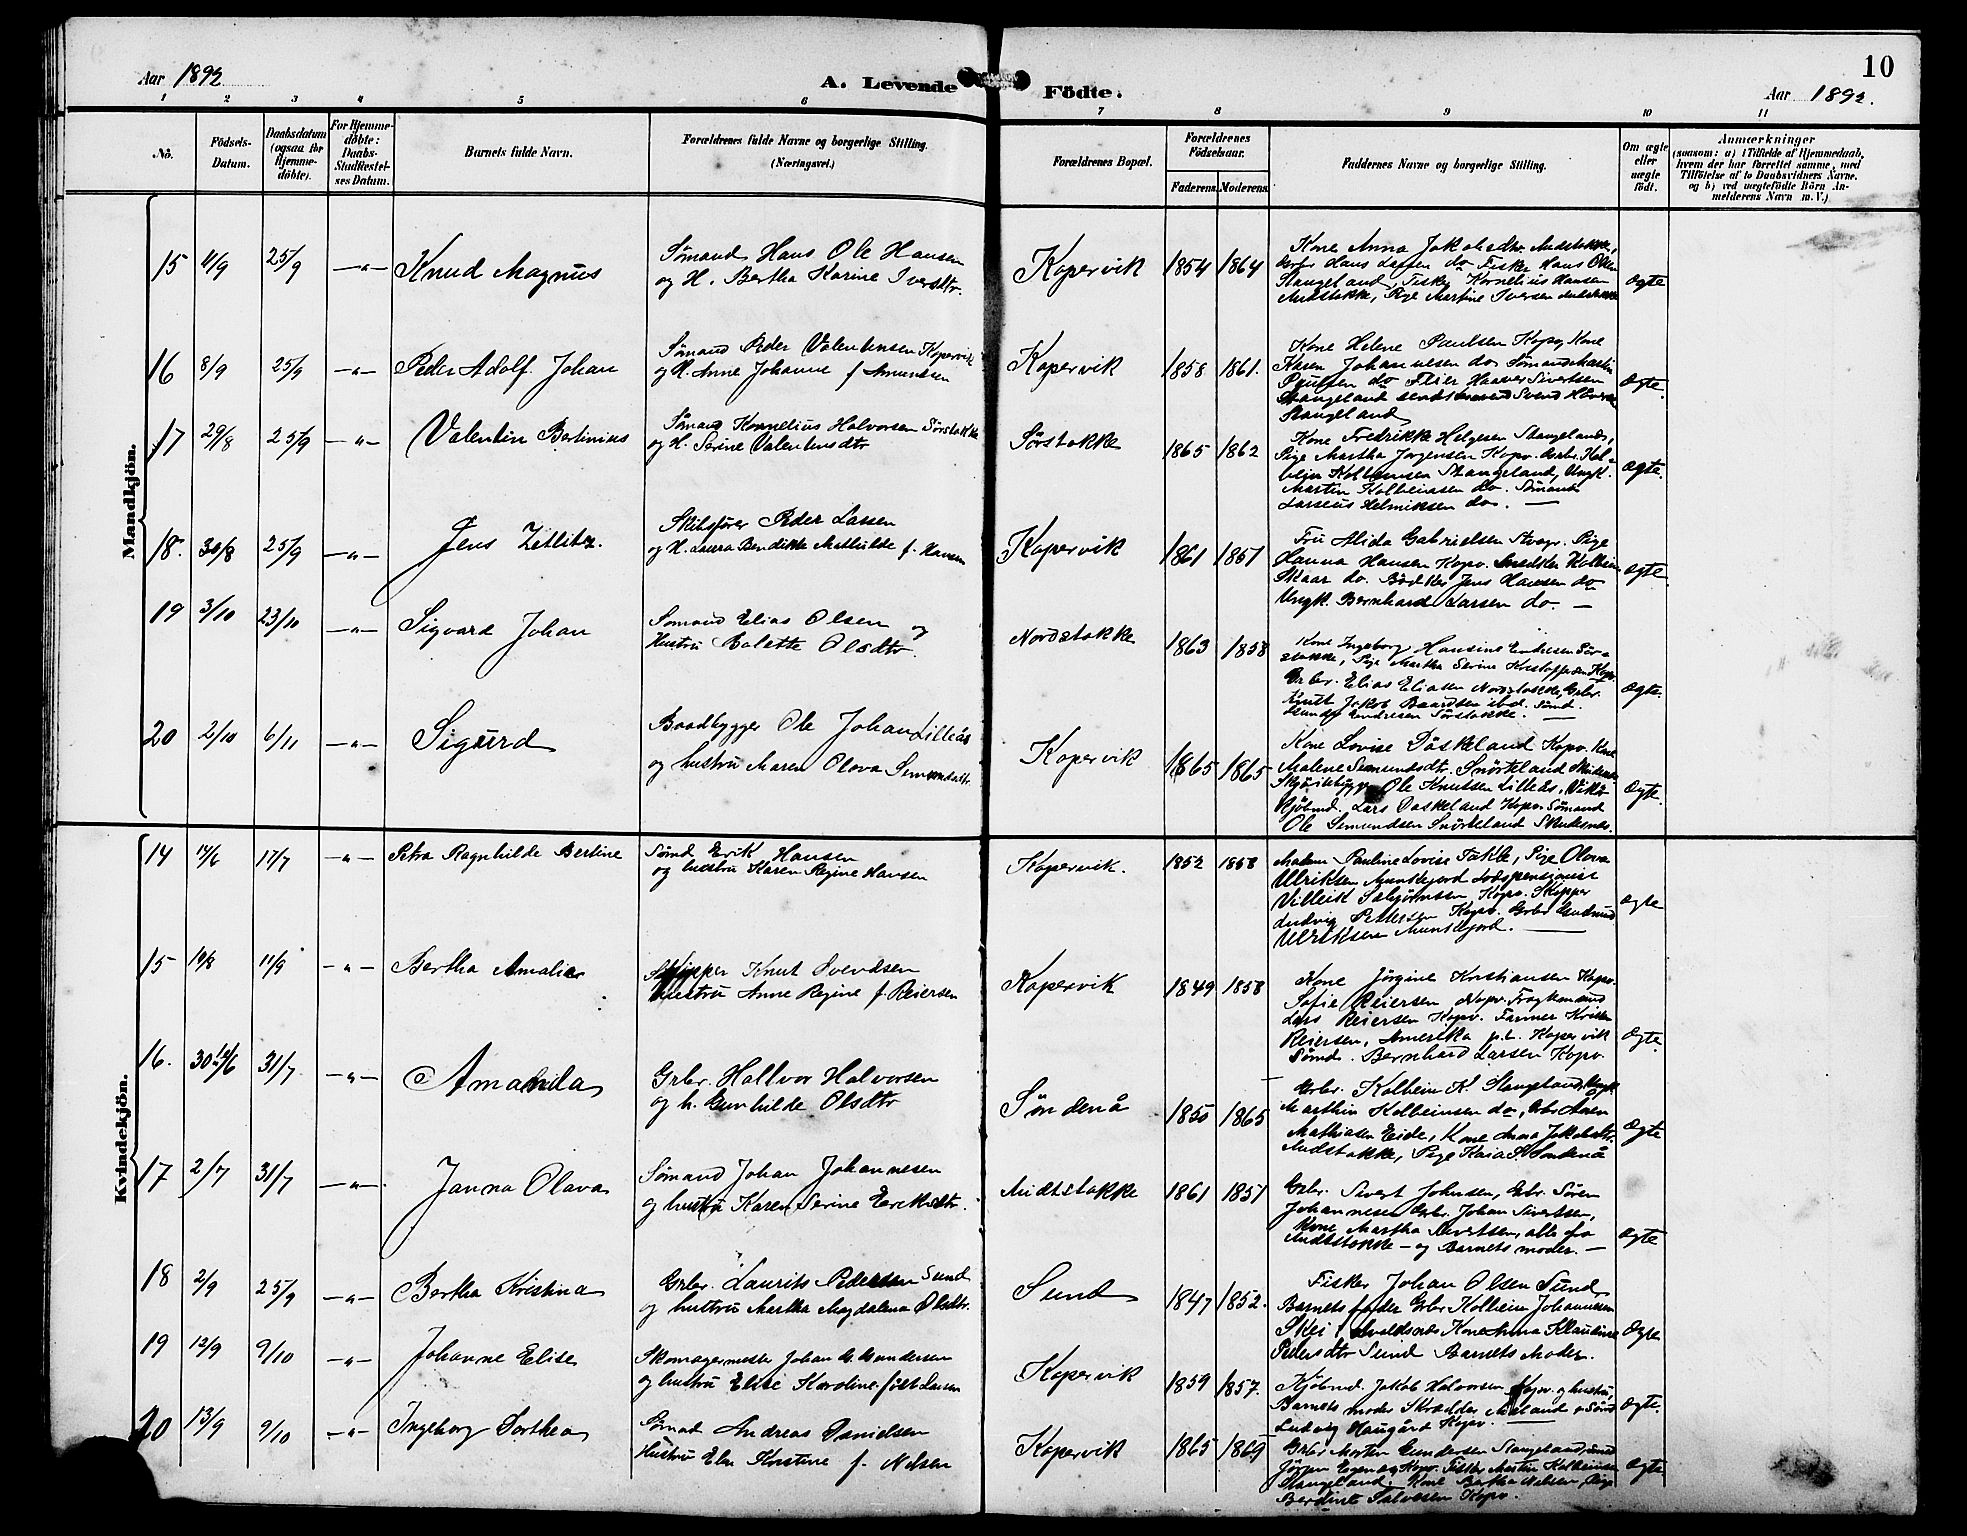 Aar 1892
A. Levende Födte.
10
Aar 1892.
1 2 3 4 5 6 7 8 9 10 11
No.
Födsels-Datum.
Daabsdatum (ogsaa for Hjemme-döbte).
For Hjemme-döbte: Daabs-Stadfæstel-ses Datum.
Barnets fulde Navn.
Forældrenes fulde Navne og borgerlige Stilling. (Næringsvei.)
Forældrenes Bopæl.
Forældrenes Födselsaar.
Faderens. Moderens.
Faddernes Navne og borgerlige Stilling.
Om ægte eller uægte födt.
Anmærkninger
(saasom: a) i Tilfælde af Hjemmedaab,
hvem der har forrettet samme, med
Tilföielse af to Daabsvidners Navne.
og b) ved uægtefödte Börn An-
melderens Navn m. V.)
Mandkjön.
15 11/9 25/9 —"— Knud Magnus
Sømand Hans Ole Hansen
og H. Bertha Karine Iversdtr.
Kopervik 1854 1864
Kone Anna Jakobsdtr. Midstokke,
Hans Larsen do Fisker Hans Olsen
Stangeland, Fisker Kornelius Hansen
Midstokke, Pige Martine Iversen Midstokke
Ægte
16 8/9 25/9 —"— Peder Adolf Johan
Sømand Peder Valentinsen Kopervik
og H. Anne Johanne f Amundsen
Kopervik 1858 1861.
Kone Helene Paulsen Kopv, Kone
Karen Johannesen do Sømand Martin
Paulsen do Sivertsen
Stangeland Svend
Stangeland
Ægte.
17 29/8 25/9 —"— Valentin Bertinius
Sømand Kornelius Halvorsen Sørstokke
og H. Serine Valentinsdtr
Sørstokke 1865 1862
Kone Fredrikke Helgesen Stangeland,
Pige Martha Jørgensen Kopv. Grbr. Kol-
bein Kolbeinsen Stangeland, Ungk.
Martin Kolbeinsen do. Sømand
Larseus Helmiksen do. —
Ægte.
18. 30/8 25/9 —"— Jens Zetlitz.
Skibsfører Peder Lassen
og H. Laura Bendikte Mathilde f. Hansen
Kopervik 1861 1851
Fru Alida Gabrielsen Stvgr. Pige
Hanna Hansen Kopv. Snedker Kolbein
Skaar do. Bødker Jens Hansen do
Ungk. Bernhard Larsen do —
Ægte
19 3/10 23/10 —"— Sigvard Johan
Sømand Elias Olsen og
Hustru Bolette Olsdtr.
Nordstokke 1863 1858
Kone Ingeborg Hansine Endresen Sør-
stokke, Pige Martha Serine Kristoffersen Kopv.
Grbr. Elias Eliasen Nordstokke, Grbr.
Knut Jakob Baardsen ibd. Sømd.
Endresen Sørstokke. —
Ægte.
20 2/10 6/11 —"— Sigurd
Baadbygger Ole Johan Lilleås
og hustru Maren Olova Semundsdtr.
Kopervik 1865 1865
Kone Lovise Dåskeland Kopv. Kone
Malene Semundsdtr. Snørteland Skudesn.
Ole Knutsen Lilleås, Vikø
Kjøbmd. Lars Daskeland Kopv. Sømand
Ole Semundsen Snørteland Skudesnæs.
Ægte.
Kvindekjön.
14 14/6 17/7 —"— Petra Ragnhilde Bertine
Sømd Erik Hansen
og hustru Karen Regine Hansen
Kopervik. 1852 1858
Madam Pauline Lovise Takle, Pige Olova
Ulriksen Munkejord Lodspensionist
Villeik Salvjørnsen Kopv. Skipper
Ludvig Pettersen Kopv. Grbr Gudmund
Ulriksen Munkejord. —
Ægte
15 14/8 11/9 —"— Bertha Amalie
Skipper Knut Svendsen
Hustru Anne Regine f. Reiersen
Kopervik 1849 1858
Kone Jørgine Kristiansen Kopv.
Sofie Reiersen Kopv. Fragtemand
Lars Reiersen Kopv. Farmer Kristen
Reiersen, Amerika p.t. Kopervik
Sømd. Bernhard Larsen Kopv.
Ægte.
16. 30/6 31/7 —"— Amanda
Grbr. Hallvor Halvorsen
og h. Gunhilde Olsdtr
Søndenå 1850 1865
Grbr. Kolbein K. Stangeland, Ungk.
Marthin Kolbeinsen do, Grbr Aaren
Mathiasen Eide, Kone Anna Jakobsdtr.
Midstokke, Pige Kaia K. Søndenå
Ægte
17 2/7 31/7 —"— Janna Olava
Sømand Johan Johannesen
og hustru Karen Serine Eriksdtr.
Midtstokke 1861 1851
Grbr. Sivert Johnsen, Grbr. Søren
Johannesen Grbr. Johan Sivertsen,
Kone Martha Sivertsen, alle fra
Midtstokke — og Barnets moder. —
Ægte
18 2/9 25/9 —"— Bertha Kristina
Grbr. Laurits Pedersen Sund
og hustru Martha Magdalena Olsdtr.
Sund 1847 1852.
Fisker Johan Olsen Sund,
Barnets fader Grbr Kolbein Johannesen
Skei i Avaldsnæs Kone Anna Klaudine
Pedersdtr Sund Barnets Moder.
Ægte
19 12/9 9/10 —"— Johanne Elise
Skomagermester Johan G. Gundersen
og hustru Elise Karoline født Larsen
Kopervik 1859 1857.
Kjøbmd. Jakob Halvorsen Kopv. og hustru,
Barnets moder Skrædder Meland & Sømd
Ludvig Haugård Kopv. —
Ægte.
20 13/9 9/10 —"— Ingeborg Dorthea
Sømd Andreas Danielsen
Hustru Elen Kristine f. Nilsen
Kopervik 1865 1869
Grbr Morten Gundersen Stangeland, Sømd
Jørgen Kopv. Fisker Martin Kolbeinsen
Stangeland. Kone Bertha Nilsen, Pige
Berdine Salvesen Kopv.
Ægte